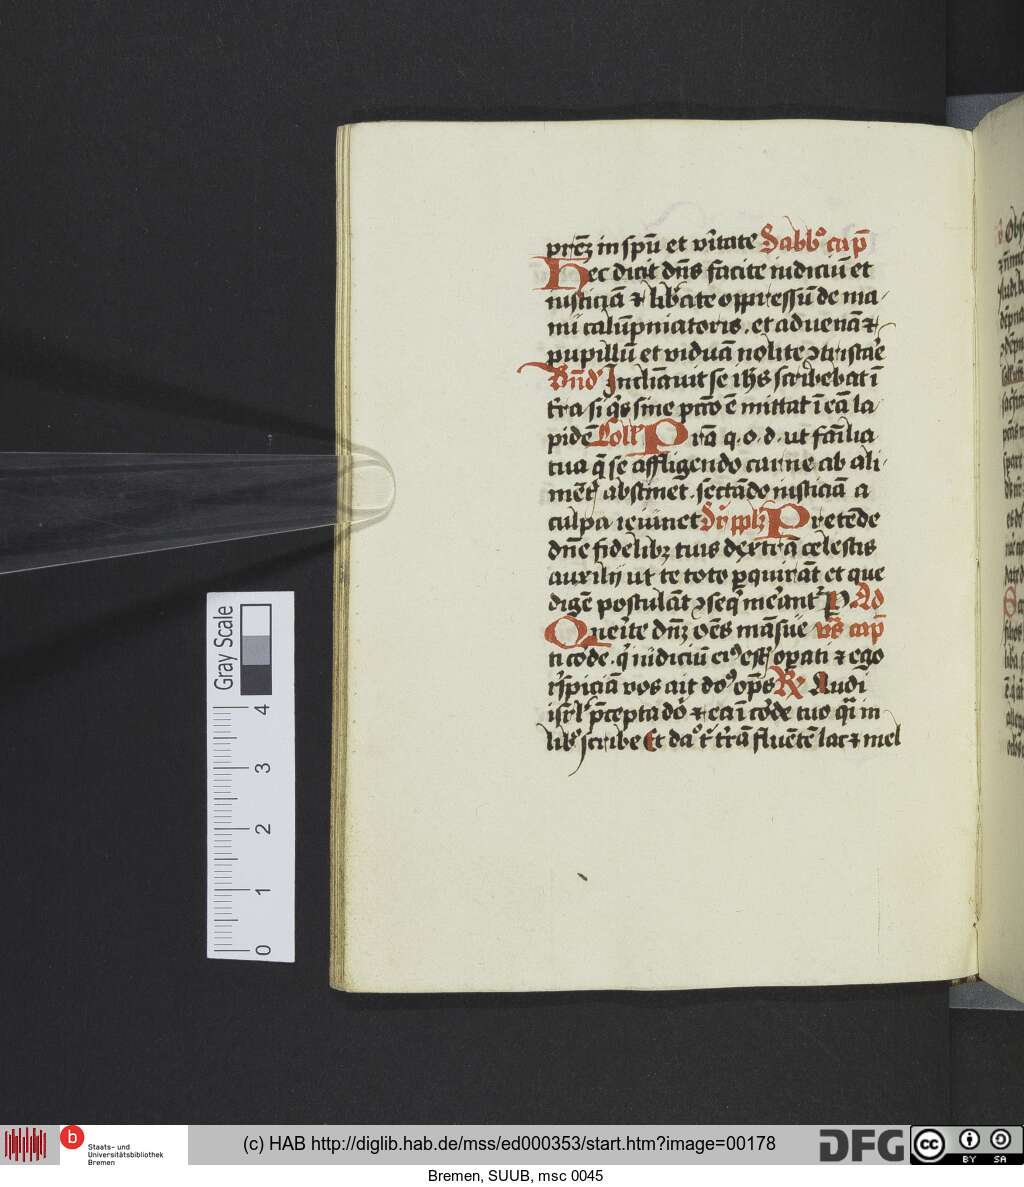 prēꝫ in spū et vītate Sabbᵒ cap̄
Hec dicit dn̄s facite iudiciū et
iusticiā ⁊ lib̄ate oppressū de ma
nu calūpniatoris . et aduenā ⁊
pupillū et viduā nolite ꝯtristar̄e
Bn̄d Inclīavit se ih̄s scribebat ī
t̄ra si q̄s sine pctō ē mittat ī eā la
pidē Coll̄ Pr̄a q . o . d . ut fāilia
tua q̄ se affligendo carne ab ali
mēt abstinet . sectādo iusticiā a
culpa ieiunet Sr̄ pplꝫ Pretēde
dn̄e fidelibꝫ tuis dextrā celestis
auxilij ut te toto ꝑquirāt et que
digē postulāt ꝯseq̄ mēant P Ad
Quer̄ite dn̄ꝫ oēs māsue vs̄ cap̄
ti code . q̄ iudiciū eiꝰ estꝭ oꝑati ⁊ ego
r̄spiciā vos ait doꝰ op̄s Rx Audi
isr̄l p̄cepta dō ⁊ ea ī cōde tuo q̄i in
libᵒ scribe Et daᵒ t̄ t̄rā fluētē lac ⁊ mel
Gray Scale
4
3
2
1
0
b
Staats- und
Universitätsbibliothek
Bremen
(c) HAB http://diglib.hab.de/mss/ed000353/start.htm?image=00178
DFG
cc
BY SA
Bremen, SUUB, msc 0045